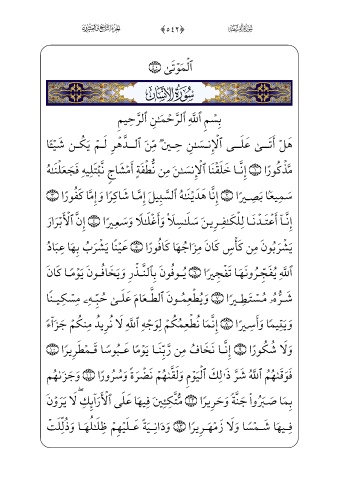 ٱلْمَوْتَىٰ ۝٤٠
سُورَةُ الإِنسَان
بِسْمِ ٱللَّهِ ٱلرَّحْمَـٰنِ ٱلرَّحِيمِ
هَلْ أَتَىٰ عَلَى ٱلْإِنسَـٰنِ حِينٌ مِّنَ ٱلدَّهْرِ لَمْ يَكُن شَيْـًٔا
مَّذْكُورًا ۝١ إِنَّا خَلَقْنَا ٱلْإِنسَـٰنَ مِن نُّطْفَةٍ أَمْشَاجٍ نَّبْتَلِيهِ فَجَعَلْنَـٰهُ
سَمِيعًۢا بَصِيرًا ۝٢ إِنَّا هَدَيْنَـٰهُ ٱلسَّبِيلَ إِمَّا شَاكِرًا وَإِمَّا كَفُورًا ۝٣
إِنَّآ أَعْتَدْنَا لِلْكَـٰفِرِينَ سَلَـٰسِلَا۟ وَأَغْلَـٰلًا وَسَعِيرًا ۝٤ إِنَّ ٱلْأَبْرَارَ
يَشْرَبُونَ مِن كَأْسٍ كَانَ مِزَاجُهَا كَافُورًا ۝٥ عَيْنًا يَشْرَبُ بِهَا عِبَادُ
ٱللَّهِ يُفَجِّرُونَهَا تَفْجِيرًا ۝٦ يُوفُونَ بِٱلنَّذْرِ وَيَخَافُونَ يَوْمًا كَانَ
شَرُّهُۥ مُسْتَطِيرًا ۝٧ وَيُطْعِمُونَ ٱلطَّعَامَ عَلَىٰ حُبِّهِۦ مِسْكِينًا
وَيَتِيمًا وَأَسِيرًا ۝٨ إِنَّمَا نُطْعِمُكُمْ لِوَجْهِ ٱللَّهِ لَا نُرِيدُ مِنكُمْ جَزَآءً
وَلَا شُكُورًا ۝٩ إِنَّا نَخَافُ مِن رَّبِّنَا يَوْمًا عَبُوسًا قَمْطَرِيرًا ۝١٠
فَوَقَىٰهُمُ ٱللَّهُ شَرَّ ذَٰلِكَ ٱلْيَوْمِ وَلَقَّىٰهُمْ نَضْرَةً وَسُرُورًا ۝١١ وَجَزَىٰهُم
بِمَا صَبَرُوا۟ جَنَّةً وَحَرِيرًا ۝١٢ مُّتَّكِـِٔينَ فِيهَا عَلَى ٱلْأَرَآئِكِ ۖ لَا يَرَوْنَ
فِيهَا شَمْسًا وَلَا زَمْهَرِيرًا ۝١٣ وَدَانِيَةً عَلَيْهِمْ ظِلَـٰلُهَا وَذُلِّلَتْ